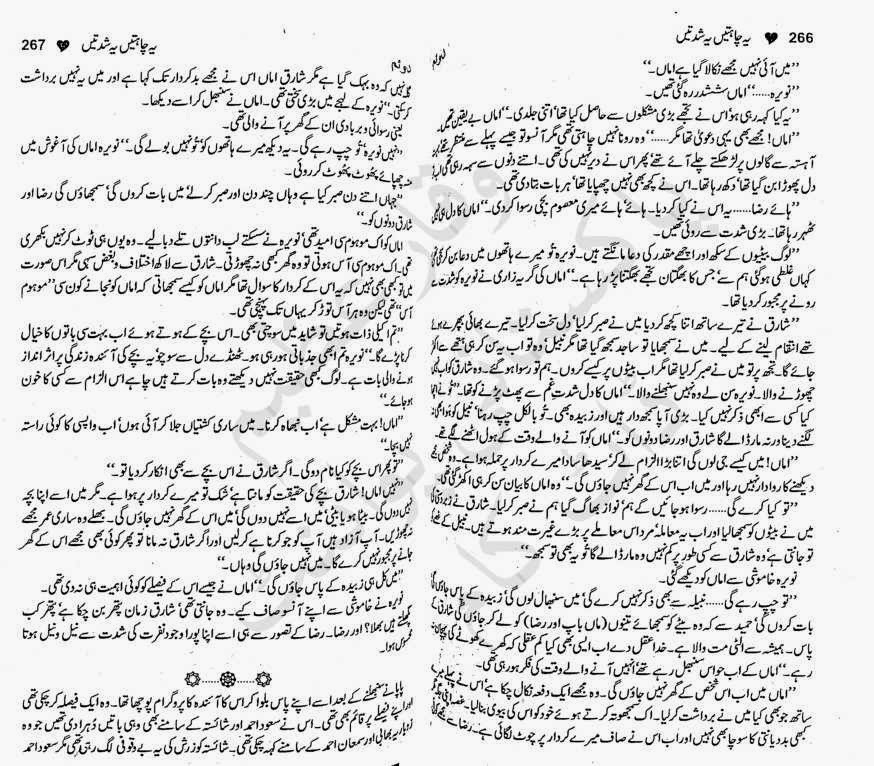 266 ♥ یہ چاہتیں یہ شدتیں
”میں آئی نہیں مجھے نکالا گیا ہے اماں۔“
”نویرہ……“ اماں ششدر رہ گئی تھیں۔
”یہ کیا کہہ رہی ہو‘ اس نے تجھے بڑی مشکلوں سے حاصل کیا تھا‘ اتنی جلدی۔“ اماں بے یقین تھیں۔
”اماں! مجھے بھی یہی دعویٰ تھا مگر……“ وہ رونا نہیں چاہتی تھی مگر آنسو تو جیسے پہلے سے منتظر تھے‘
آہستہ سے گالوں پر لڑھکتے چلے آئے تھے‘ پھر اس نے دیر نہیں کی تھی۔ اتنے دنوں سے سہہ رہی تھی
دل پھوڑا بن گیا تھا‘ دکھ رہا تھا۔ اس نے کچھ بھی نہیں چھپایا تھا‘ ہر بات بتا دی تھی۔
”ہائے رضا…… یہ اس نے کیا کر دیا۔ ہائے‘ ہائے میری معصوم بچی رسوا کر دی۔“ اماں کا دل نہیں
ٹھہر رہا تھا۔ بڑی شدت سے روئی تھیں۔
”لوگ بیٹیوں کے سکھ اور اچھے مقدر کی دعا مانگتے ہیں۔ نویرہ تُو میرے ہاتھوں میں دعا بن کر آئی تھی
کہاں غلطی ہو گئی ہم سے‘ جس کا بھگتان تجھے بھگتنا پڑ رہا ہے۔“ اماں کی گریہ زاری نے نویرہ کو شدت سے
رونے پر مجبور کر دیا تھا۔
”شارق نے تیرے ساتھ اتنا کچھ کر دیا میں نے صبر کر لیا‘ دل سخت کر لیا۔ تیرے بھائی بپھرے ہوئے
تھے انتقام لینے کے لیے۔ میں نے سمجھایا تو ساجد سمجھ گیا تھا مگر نبیل‘ وہ تو اب یہ سن کر ہی‘ ہتھے سے اکھڑ
جائے گا۔ تجھ پر تو میں نے صبر کر لیا تھا مگر اب بیٹوں پر کیسے کروں۔ ہم تو رسوا ہو گئے۔ وہ شارق کو اب نہیں
چھوڑنے والا۔ نویرہ سن لے وہ نہیں سنبھلنے والا۔“ اماں کا دل شدتِ غم سے پھٹ پڑنے کو تھا۔ ”تُو نے اچھا
کیا کسی سے ابھی ذکر نہیں کیا۔ بڑی آپا سمجھدار ہیں اور زبیدہ بھی۔ تُو بالکل چپ رہنا‘ نبیل کو ہوا بھی نہ
لگنے دینا ورنہ مار ڈالے گا شارق اور رضا دونوں کو۔“ اماں کو آنے والے وقت کے ہول اٹھنے لگے تھے۔
”اماں! میں کیسے جی لوں گی اتنا بڑا الزام لے کر‘ سیدھا سادا میرے کردار پر حملہ ہوا ہے۔ وہ شخص مجھے
دیکھنے کا روادار نہیں رہا اور میں اب اس کے گھر نہیں جاؤں گی۔“ وہ اماں کا بیان سن کر ہی اکھڑ گئی تھی۔
”تو کیا کرے گی…… رسوا ہو جائیں گے ہم‘ نواز بھاگ گیا ہم نے صبر کر لیا۔ شارق نے زبردستی کی
میں نے بیٹوں کو سمجھا لیا اور اب یہ معاملہ‘ مرد اس معاملے پر بڑے غیرت مند ہوتے ہیں۔ نبیل کے غصے
تو جانتی ہے‘ وہ شارق سے کسی طور پر کم نہیں وہ مار ڈالے گا‘ تُو یہ بھی تو سمجھ۔“
نویرہ خاموشی سے اماں کو دیکھے گئی۔
”تو چپ رہے گی…… نبیلہ سے بھی ذکر نہیں کرے گی‘ میں سنبھال لوں گی‘ زبیدہ کے پاس جاؤں گی
بات کروں گی‘ حمید سے کہ وہ بیٹے کو سمجھائے تینوں (ماں باپ اور رضا) کو لے کر جاؤں گی شارق کے
پاس۔ ہمیشہ سے الٹی مت والا ہے۔ خدا عقل دے اب ایسی بھی کیا کم عقلی کہ کھرے کھوٹے کی پہچان نہ
رہے۔“ اماں کے اب حواس سنبھل رہے تھے‘ انہیں آنے والے وقت کی فکر ہو رہی تھی۔
”اماں میں اب اس شخص کے گھر نہیں جاؤں گی۔ وہ مجھے ایک دفعہ نکال چکا ہے‘ اس نے پہلے میرے
ساتھ جو بھی کیا میں نے برداشت کر لیا۔ اک سمجھوتہ کرتے ہوئے خود کو اس کی بیوی بنا لیا۔
کبھی بددیانتی کا سوچا بھی نہیں اور اب اس نے صاف میرے کردار پر چوٹ لگائی ہے۔ رضا سے
یہ چاہتیں یہ شدتیں ♥ 267
نہیں کہ وہ بہک گیا ہے مگر شارق اماں اس نے مجھے بدکردار تک کہا ہے اور میں یہ نہیں برداشت
کر سکتی۔“ نویرہ کے لہجے میں بڑی سختی تھی۔ اماں نے سنبھل کر اسے دیکھا۔
یعنی رسوائی و بربادی ان کے گھر پر آنے والی تھی۔
”نہیں نویرہ‘ تُو چپ رہے گی۔ یہ دیکھ میرے ہاتھوں کو تُو نہیں بولے گی۔“ نویرہ اماں کی آغوش میں
منہ چھپائے پھوٹ پھوٹ کر روئی۔
”جہاں اتنے دن صبر کیا ہے وہاں چند دن اور صبر کر لے‘ میں بات کروں گی‘ سمجھاؤں گی رضا اور
شارق دونوں کو۔“
اماں کو اک موہوم سی امید تھی‘ نویرہ نے سسکتے لب دانتوں تلے دبا لیے۔ وہ یوں ہی ٹوٹ کر نہیں بکھری
تھی۔ اک موہوم سی آس ہوتی تو وہ گھر کبھی نہ چھوڑتی۔ شارق سے لاکھ اختلاف و بغض سہی مگر اس صورت
میں تو کبھی بھی نہیں کہ یہ اس کے کردار کا سوال تھا مگر اماں کو کیسے سمجھاتی کہ اماں کو نجانے کون سی ”موہوم
آس“ تھی لیکن وہ ہر آس توڑ کر یہاں تک پہنچی تھی۔
”تم اکیلی ذات ہوتیں تو شاید میں سوچتی بھی۔ اس بچے کے ہوتے ہوئے اب بہت سی باتوں کا خیال
کرنا پڑے گا۔“ نویرہ تم ابھی جذباتی ہو رہی ہو‘ ٹھنڈے دل سے سوچو‘ یہ بچے کی آئندہ زندگی پر اثر انداز
ہونے والی بات ہے۔ لوگ کبھی حقیقت نہیں دیکھتے وہ بات کرتے ہیں چاہے اس الزام سے کسی کا خون
ہو جائے۔“
”اماں! بہت مشکل ہے‘ اب نبھاہ کرنا۔ میں ساری کشتیاں جلا کر آئی ہوں‘ اب واپسی کا کوئی راستہ
نہیں بچا۔“
”تو پھر اس بچے کو کیا نام دو گی۔ اگر شارق نے اس بچے سے بھی انکار کر دیا تو۔“
”نہیں اماں! شارق بچے کی حقیقت کو مانتا ہے‘ شک تو میرے کردار پر ہوا ہے۔ مگر میں اسے اپنا بچہ
نہیں دوں گی۔ بیٹا ہو یا بیٹی‘ میں اسے نہیں دوں گی‘ میں اس کے گھر نہیں جاؤں گی۔ بھلے وہ ساری عمر مجھے
نہ چھوڑیں۔ آپ آزاد ہیں آپ کو جو کرنا ہے کر لیں اور اگر شارق نہ مانا تو پھر کوئی بھی مجھے اس کے گھر
جانے پر مجبور نہیں کرے گا۔ میں نہیں جاؤں گی وہاں۔“
”میں کل ہی زبیدہ کے پاس جاؤں گی۔“ اماں نے جیسے اس کے فیصلے کو کوئی اہمیت ہی نہ دی تھی۔
نویرہ نے خاموشی سے اپنے آنسو صاف کیے۔ وہ جانتی تھی‘ شارق زمان پتھر بن چکا ہے‘ پتھر کب
پگھلتے ہیں بھلا؟ اور رضا۔ رضا کے تصور سے ہی اسے اپنا پورا وجود نفرت کی شدت سے نیل و نیل ہوتا
محسوس ہوا۔
پاپا نے سنبھلنے کے بعد اسے اپنے پاس بلوا کر اس کا آئندہ کا پروگرام پوچھا تھا۔ وہ ایک فیصلہ کر چکی تھی
اور اپنے فیصلے پر قائم بھی تھی۔ اس نے سعود احمد اور شائستہ کے سامنے بھی وہی باتیں دُہرا دی تھیں جو وہ
زوباریہ بھابی اور سمعان احمد کے سامنے کہہ چکی تھی۔ شائستہ کو زرش کی یہ بے وقوفی لگ رہی تھی مگر سعود احمد